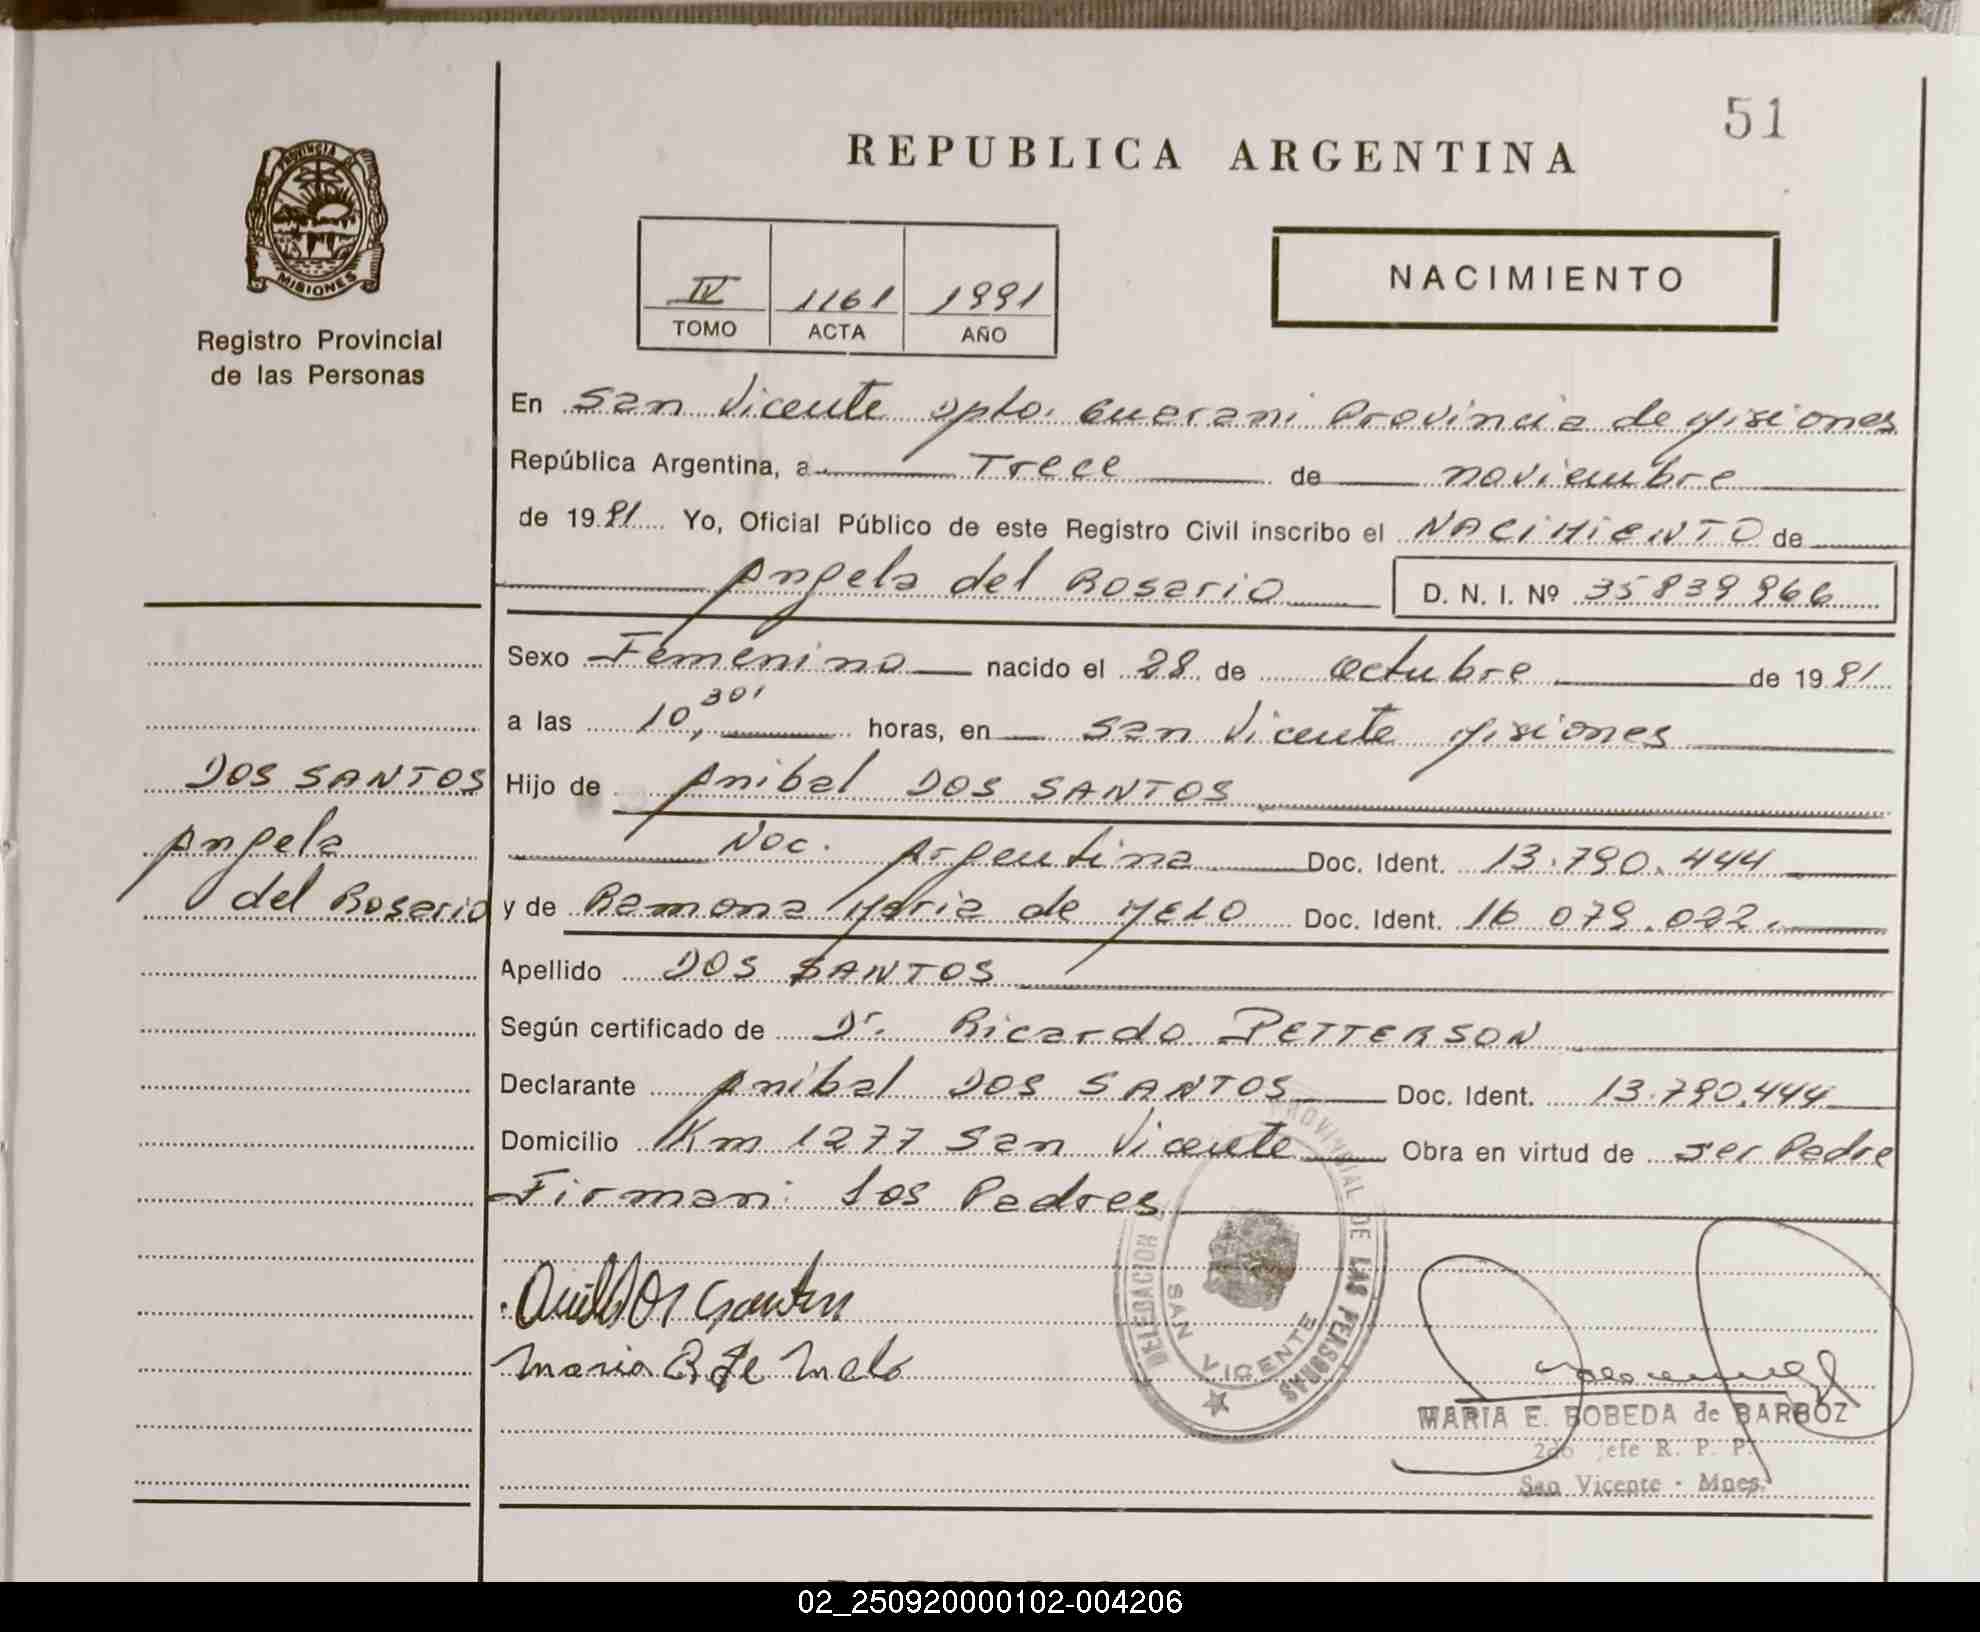 51
REPUBLICA ARGENTINA
PROVINCIA DE
MISIONES
Registro Provincial
de las Personas
IV 1161 1991
TOMO ACTA AÑO
NACIMIENTO
En San Vicente Dpto. Guarani Provincia de Misiones
República Argentina, a Trece de noviembre
de 1991 Yo, Oficial Público de este Registro Civil inscribo el NACIMIENTO de
Angela del Rosario D. N. I. Nº 35839966
Sexo Femenino nacido el 28 de octubre de 1991
a las 10,30' horas, en San Vicente Misiones
DOS SANTOS
Angela
del Rosario
Hijo de Anibal DOS SANTOS
Nac. Argentina Doc. Ident. 13.790.444
y de Ramona Maria de MELO Doc. Ident. 16 079.022.
Apellido DOS SANTOS
Según certificado de Dr. Ricardo PETTERSON
Declarante Anibal DOS SANTOS Doc. Ident. 13.790.444
Domicilio Km 1277 San Vicente Obra en virtud de ser Padre
Firman: Los Padres
Maria R de Melo
DELEGACION PROVINCIAL DE LAS PERSONAS
SAN VICENTE
MARIA E. BOBEDA de BARBOZ
2do Jefe R. P. P.
San Vicente - Mnes.
02_250920000102-004206